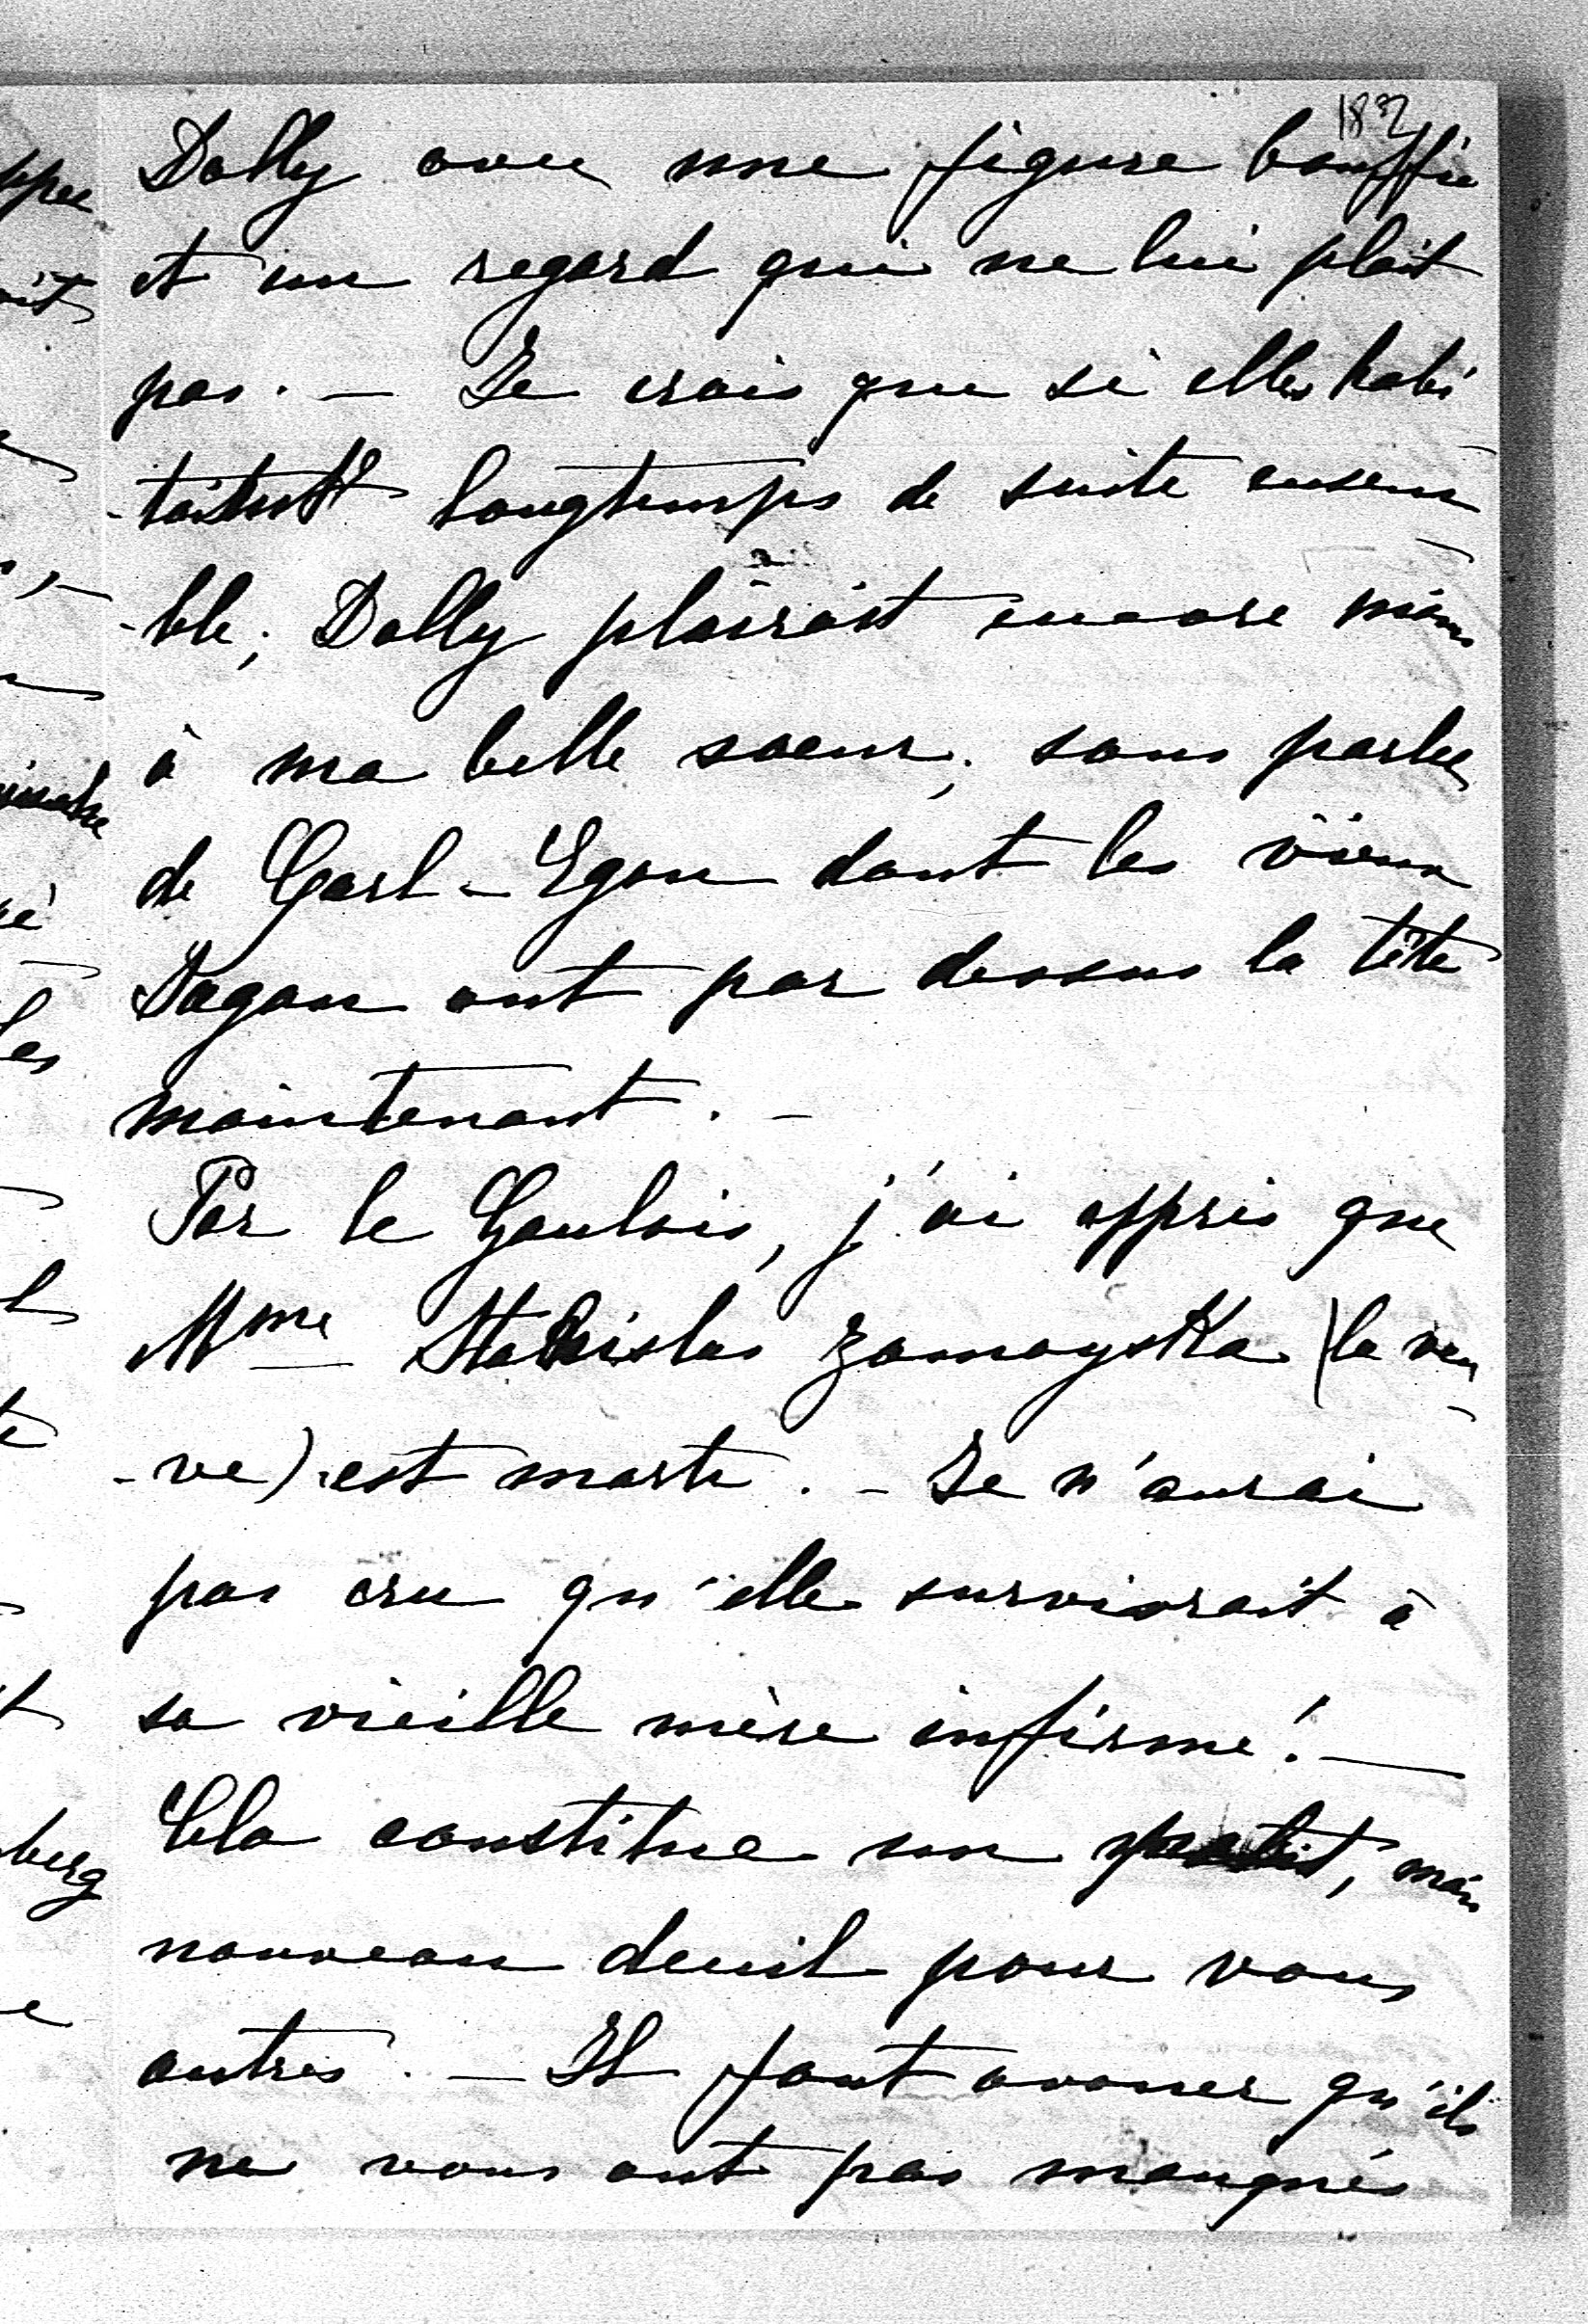 182
Dolly avec une figure bouffie
et un regard qui ne lui plait
pas. — Je crois que si elles habi
-taient longtemps de suite ensem
-ble, Dolly plairait encore moins
à ma belle soeur, sans parler
de Carl-Egon dont les vieux
Dagon ont par dessus la tête
maintenant. —
Par le Gaulois, j'ai appris que
Mme Stanislas Zamoyska (la veu
-ve) est morte. — Je n'aurai
pas cru qu'elle survivrait à
sa vieille mère infirme! —
Cela constitue un petit, mais
nouveau deuil pour vous
autres. — Il faut avouer qu'ils
ne vous ont pas manqués